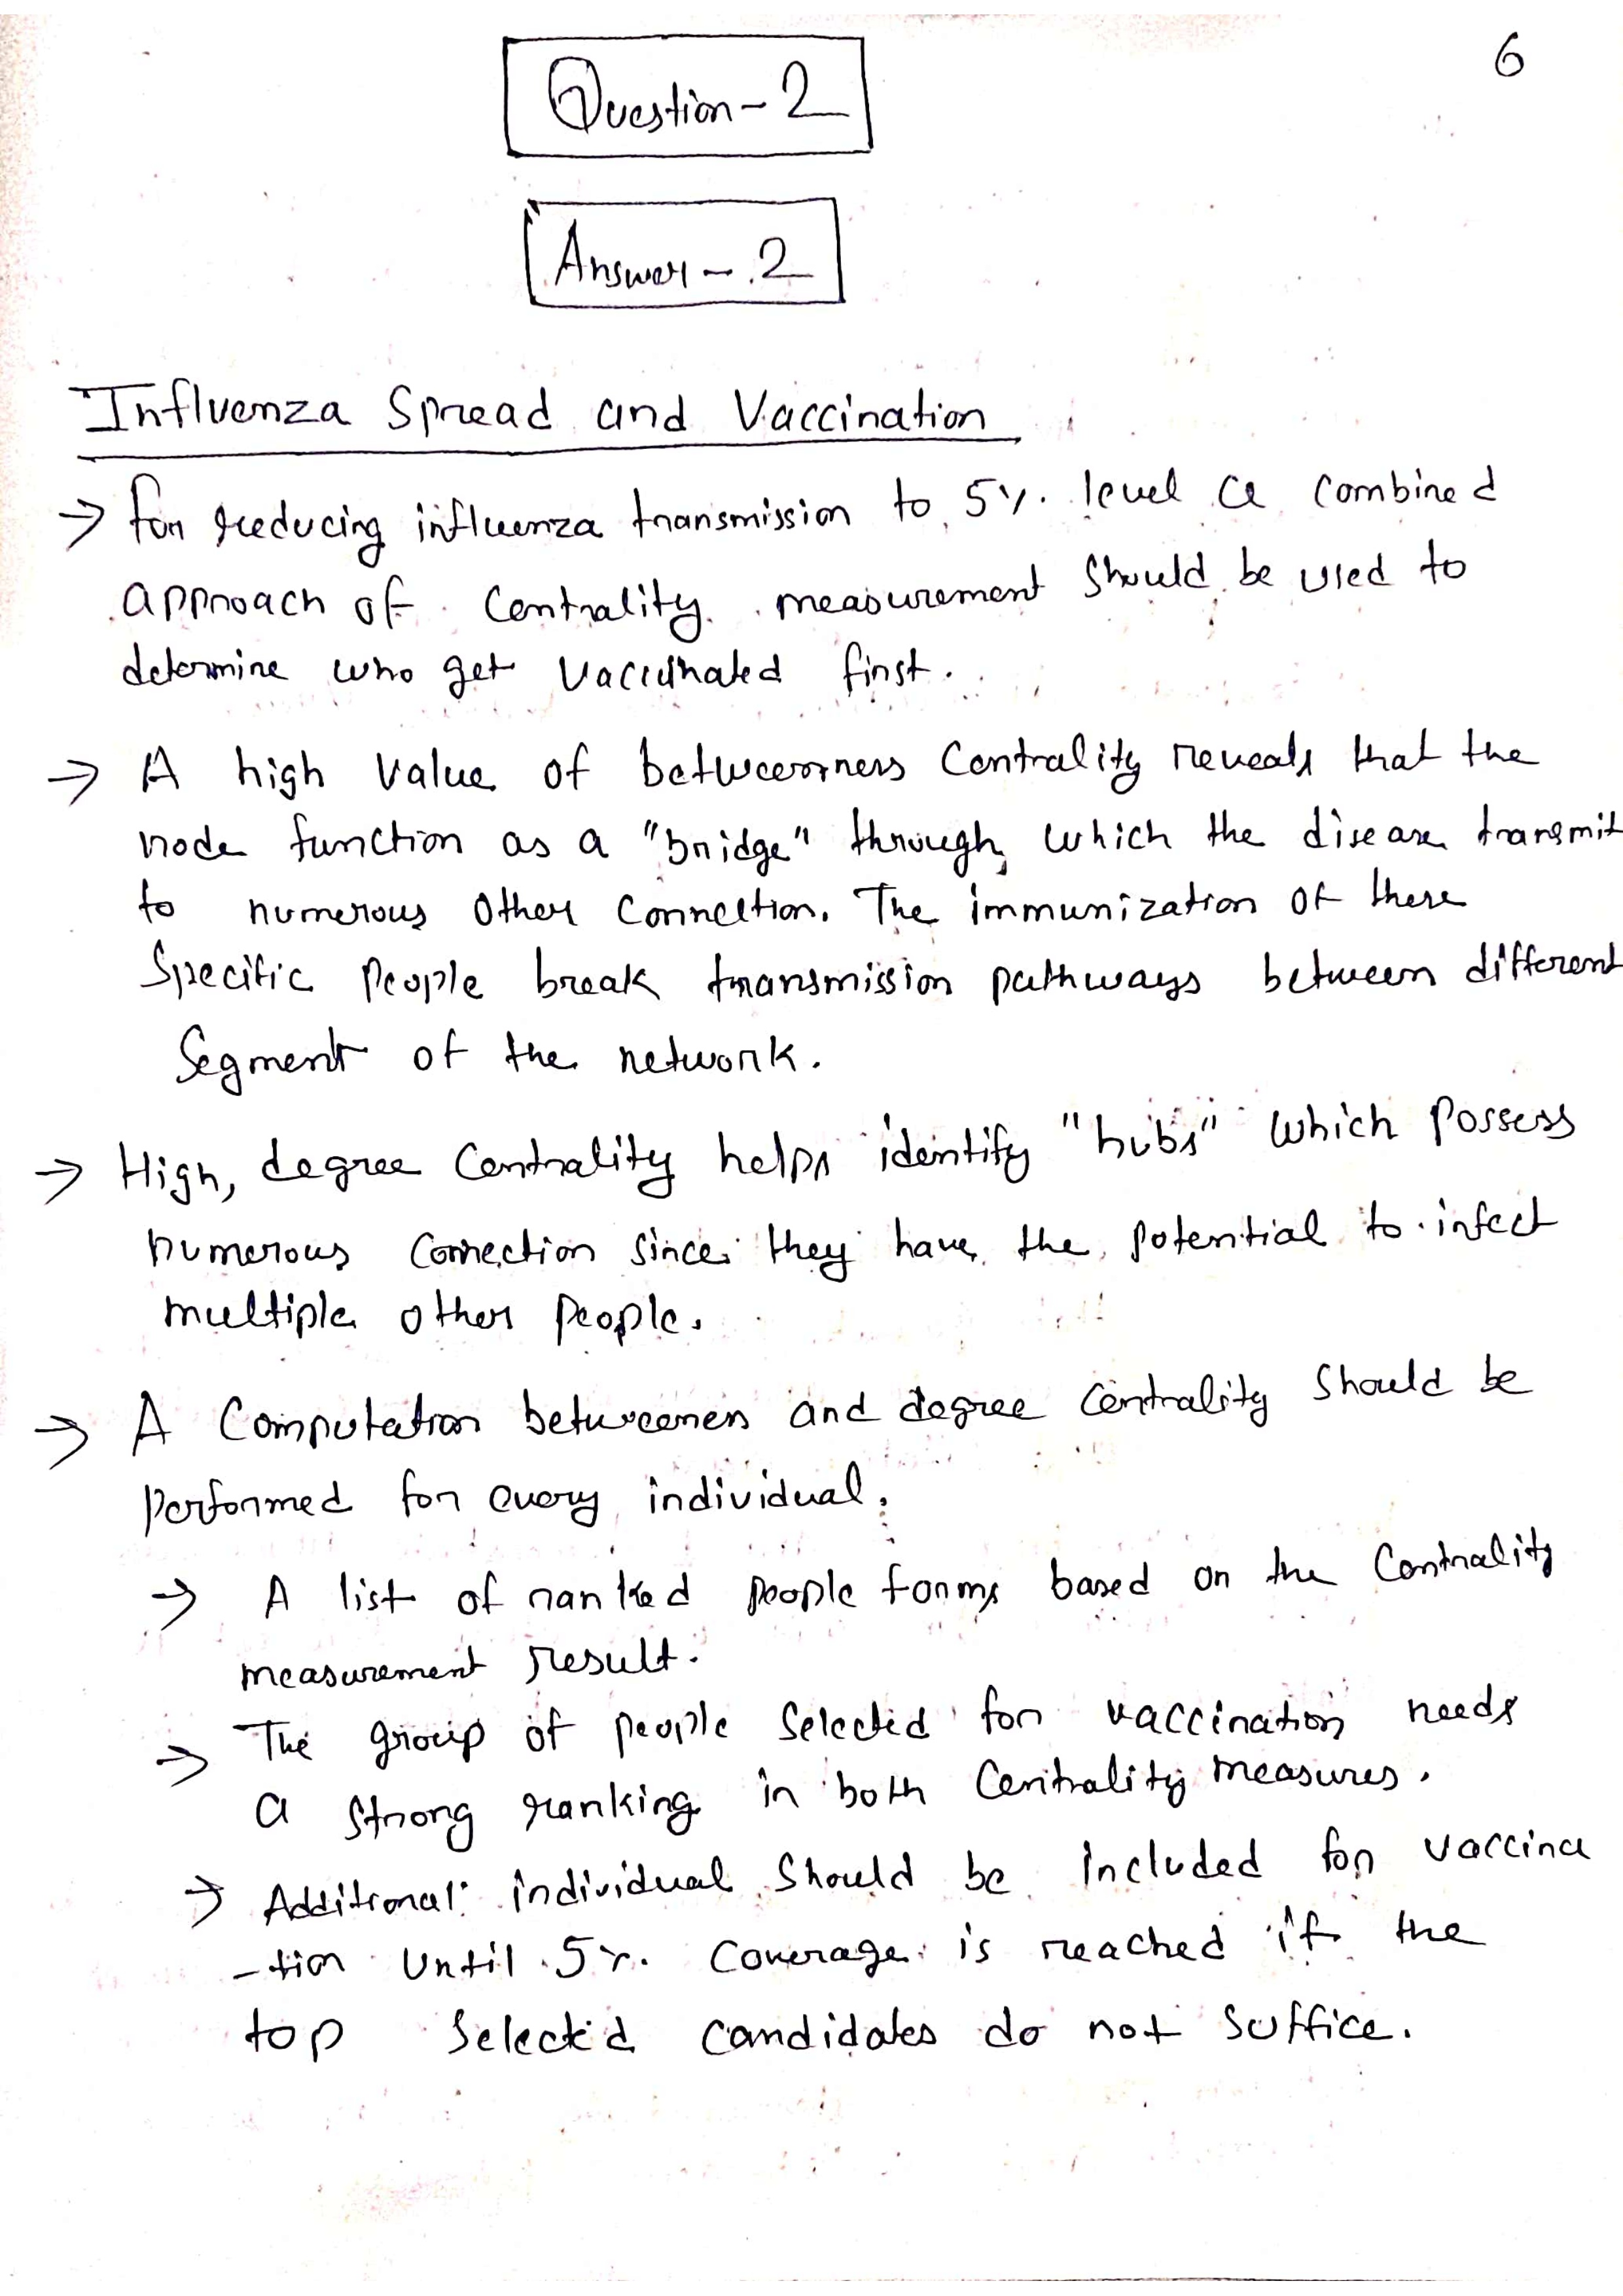 6
Question - 2
Answer - 2
Influenza Spread and Vaccination
→ for reducing influenza transmission to 5% level a combined
approach of centrality measurement should be used to
determine who get vaccinated first.
→ A high value of betweenness Centrality reveals that the
node function as a "bridge" through which the disease transmit
to numerous other connection. The immunization of these
Specific people break transmission pathways between different
Segment of the network.
→ High, degree Centrality helps identify "hubs" which possess
numerous connection since they have the potential to infect
multiple other people.
→ A Computation betweenness and degree Centrality should be
performed for every individual.
→ A list of ranked people forms based on the Centrality
measurement result.
→ The group of people selected for vaccination needs
a strong ranking in both Centrality measures.
→ Additional individual should be included for vaccina
-tion until 5% coverage is reached if the
top selected candidates do not suffice.